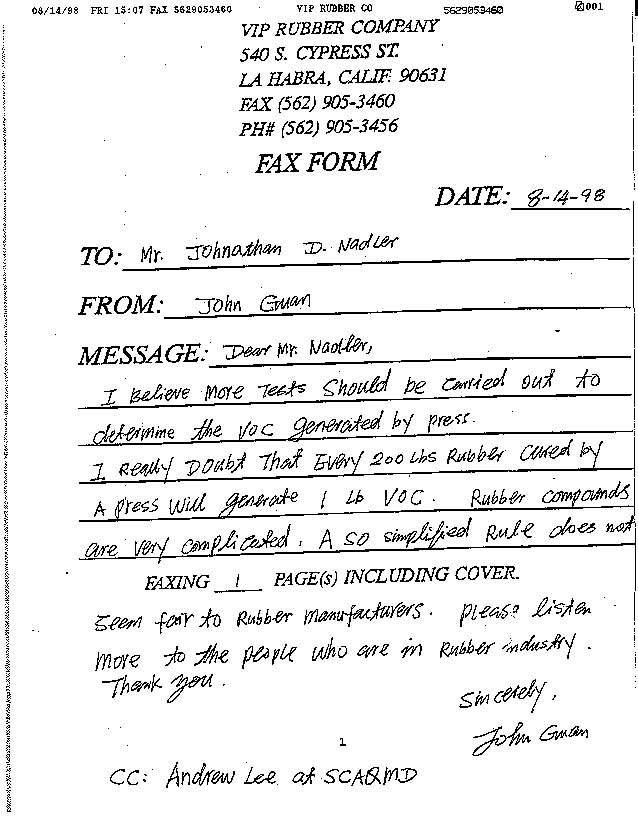 08/14/98 FRI 15:07 FAX 5629053460 VIP RUBBER CO 5629053460 001
VIP RUBBER COMPANY
540 S. CYPRESS ST.
LA HABRA, CALIF. 90631
FAX (562) 905-3460
PH# (562) 905-3456
FAX FORM
DATE: 8-14-98
TO: Mr. Johnathan D. Nadler
FROM: John Guan
MESSAGE: Dear Mr. Nadler,
I Believe More Tests Should be carried out to
determine the VOC generated by press.
I Really Doubt That Every 200 Lbs Rubber cured by
A press will generate 1 Lb VOC. Rubber compounds
are very complicated. A so simplified Rule does not
FAXING 1 PAGE(S) INCLUDING COVER.
seem fair to Rubber manufacturers. please listen
more to the people who are in Rubber industry.
Thank you.
Sincerely,
John Guan
1
CC: Andrew Lee at SCAQMD